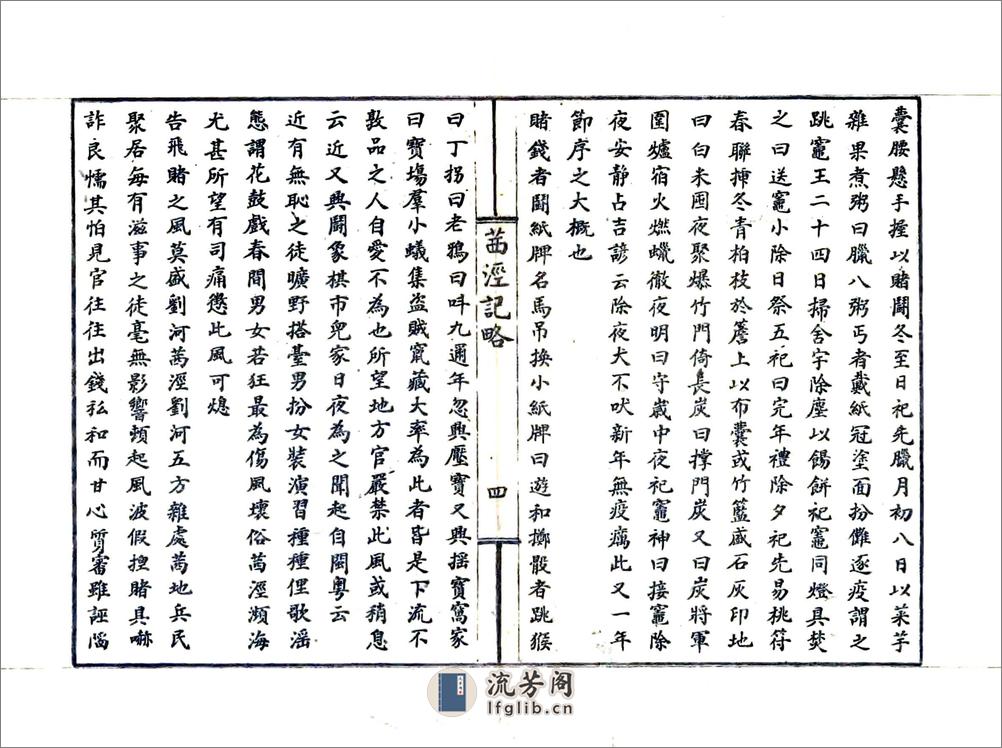 囊腰懸手握以賭鬪冬至日祀先臘月初八日以菜芋
雜果煮粥曰臘八粥丐者戴紙冠塗面扮儺逐疫謂之
跳竈王二十四日掃舍宇除塵以餳餅祀竈同燈具焚
之曰送竈小除日祭五祀曰完年禮除夕祀先易桃符
春聯揷冬青柏枝於簷上以布囊或竹籃盛石灰印地
曰白米囤夜聚爆竹門倚長炭曰撑門炭又曰炭將軍
圍爐宿火燃蠟徹夜明曰守歲中夜祀竈神曰接竈除
夜安靜占吉諺云除夜犬不吠新年無疫癘此又一年
節序之大概也
賭錢者鬪紙牌名馬吊換小紙牌曰遊和擲骰者跳猴
茜涇記略
四
曰丁拐曰老鴉曰呌九通年忽興壓寶又興摇寶窩家
曰寶塲羣小蟻集盗賊竄藏大率為此者皆是下流不
敦品之人自愛不為也所望地方官嚴禁此風或稍息
云近又興鬪象棋市兒家日夜為之聞起自閩粵云
近有無恥之徒曠野搭臺男扮女裝演習種種俚歌滛
態謂花鼓戲春間男女若狂最為傷風壞俗茜涇瀕海
尤甚所望有司痛懲此風可熄
告飛賭之風莫盛劉河茜涇劉河五方雜處茜地兵民
聚居每有滋事之徒毫無影響頓起風波假揑賭具嚇
詐良懦其怕見官往往出錢私和而甘心質審雖誣

流芳阁
lfglib.cn